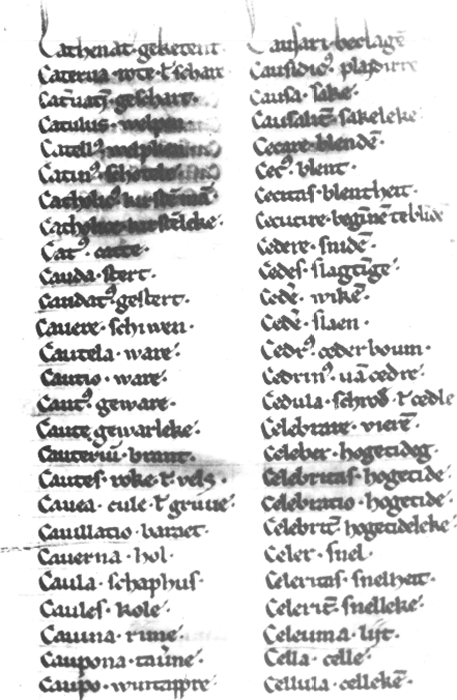 Cathenat᷒·geketent·
Cat̄uat᷒·geschart·
Catulus·welpen·
Catell᷒·welpken
Catin᷒·schotele
Cat᷒·catte·
Cauda·stert·
Caudat᷒·gestert·
Cauere·schiwen·
Cautela·ware·
Cautio·ware·
Caut᷒·geware·
Caute gewarleke·
Cauteriū·brant·
Cautes·roke t̄ vels·
Cauea·cule t̄ gruue·
Cauillatio·baraet·
Cauerna·hol·
Caula·schaphus·
Caules·kole·
Cauma·rime·
Caupona·tau̅ne·
Causari·beclagē
Causidic᷒·
Causa·sake·
Causalit̄·sakeleke·
Cecare·blendē·
Cec᷒·blent·
Cecitas·blentheit·
Cecutire·beginē te blīdē
Cedere·snidē·
Cedes·slagtīge·
Cedē·wikē·
Cedē·slaen·
Cedr᷒·ceder boum·
Cedrin᷒·uā cedre·
Cedula·schrod̄ t̄ cedle
Celebrare·vierē·
Celeber·hogetideg·
Celebritas·hogetide·
Celebratio·hogetide·
Celebrit̄·hogetidelcke·
Celer·snel·
Celeritas·snelheit·
Celerit̄·snelleke·
Celeuma·
Cella·celle·
Cellula·cellekē·